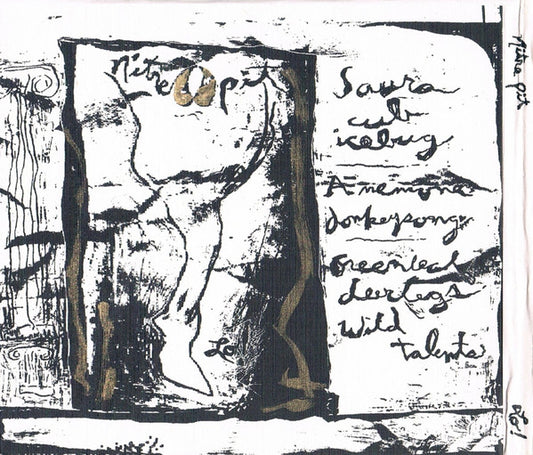 Nitre pit
Saura
cub
icebug
Anemona
donkeysongs
Greenleaf
deerlegs
wild
talents
Le
Nitre pit